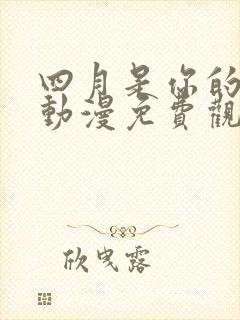 四月是你的
動漫免費觀
欣曳露